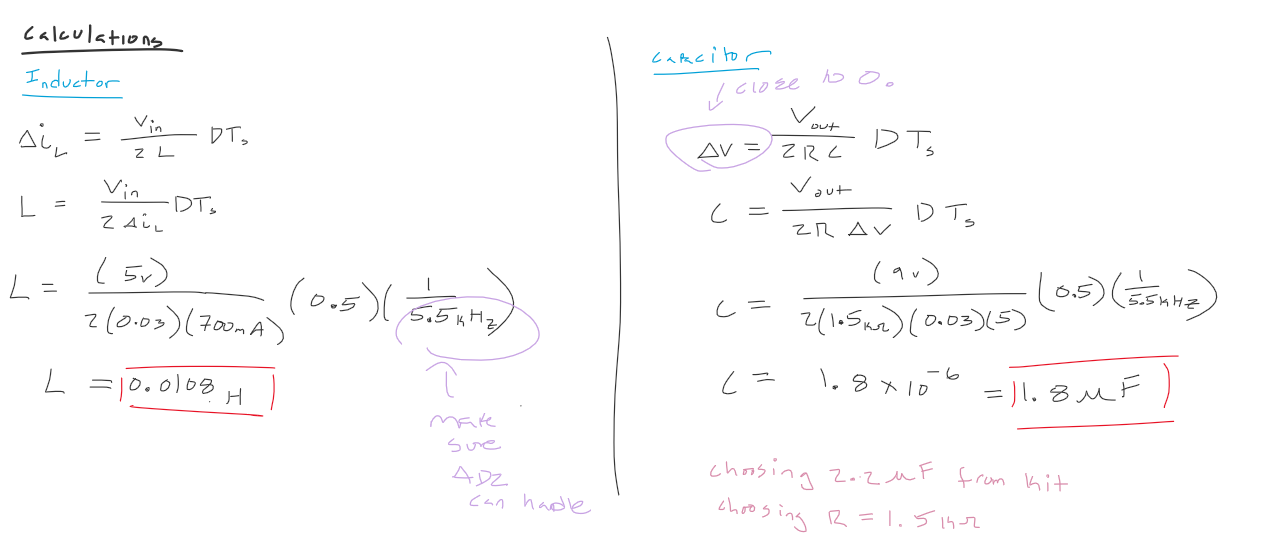 Calculations
Inductor
Δi_L = V_in / 2L DT_s
L = V_in / 2 Δi_L DT_s
L = (5v) / 2(0.03)(700mA) (0.5)(1 / 5.5kHz)
L = 0.0108 H
make
sure
AD2
can handle
Capacitor
close to 0.
ΔV = V_out / 2RC DT_s
C = V_out / 2R ΔV DT_s
C = (9v) / 2(1.5kΩ)(0.03)(5) (0.5)(1 / 5.5kHz)
C = 1.8 × 10^-6 = 1.8 μF
choosing 2.2 μF from kit
choosing R = 1.5kΩ